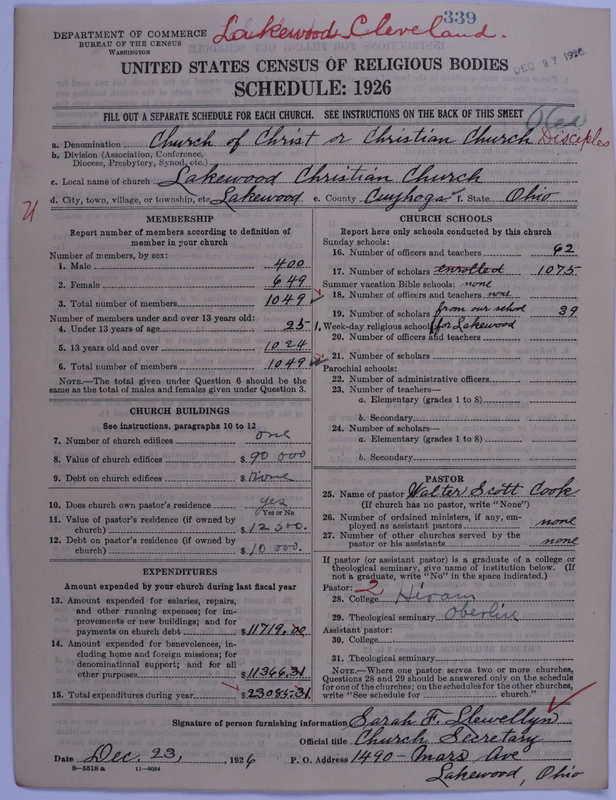 339
Lakewood Cleveland.
DEPARTMENT OF COMMERCE
BUREAU OF THE CENSUS
WASHINGTON
DEC 27 1926
UNITED STATES CENSUS OF RELIGIOUS BODIES
SCHEDULE: 1926
FILL OUT A SEPARATE SCHEDULE FOR EACH CHURCH. SEE INSTRUCTIONS ON THE BACK OF THIS SHEET
a. Denomination Church of Christ or Christian Church Disciples
b. Division (Association, Conference, Diocese, Presbytery, Synod, etc.)
c. Local name of church Lakewood Christian Church
d. City, town, village, or township, etc. Lakewood e. County Cuyhoga f. State Ohio
MEMBERSHIP
Report number of members according to definition of
member in your church
Number of members, by sex:
1. Male 400
2. Female 649
3. Total number of members 1049
Number of members under and over 13 years old:
4. Under 13 years of age 25
5. 13 years old and over 1024
6. Total number of members 1049
NOTE.—The total given under Question 6 should be
same as the total of males and females given under Question 3.
CHURCH BUILDINGS
See instructions, paragraphs 10 to 12
7. Number of church edifices one
8. Value of church edifices $ 90 000
9. Debt on church edifices $ None
10. Does church own pastor's residence yes
Yes or No
11. Value of pastor's residence (if owned by
church) $ 12 500.
12. Debt on pastor's residence (if owned by
church) $ 10 000.
EXPENDITURES
Amount expended by your church during last fiscal year
13. Amount expended for salaries, repairs,
and other running expenses; for im-
provements or new buildings; and for
payments on church debt $ 11719.00
14. Amount expended for benevolences, in-
cluding home and foreign missions; for
denominational support; and for all
other purposes $ 11366.31
15. Total expenditures during year $ 23085.31
CHURCH SCHOOLS
Report here only schools conducted by this church
Sunday schools:
16. Number of officers and teachers 62
17. Number of scholars enrolled 1075
Summer vacation Bible schools: none
18. Number of officers and teachers none
19. Number of scholars from our school 39
Week-day religious schools: for Lakewood
20. Number of officers and teachers
21. Number of scholars
Parochial schools:
22. Number of administrative officers
23. Number of teachers—
a. Elementary (grades 1 to 8)
b. Secondary
24. Number of scholars—
a. Elementary (grades 1 to 8)
b. Secondary
PASTOR
25. Name of pastor Walter Scott Cook
(If church has no pastor, write "None")
26. Number of ordained ministers, if any, em-
ployed as assistant pastors none
27. Number of other churches served by the
pastor or his assistants none
If pastor (or assistant pastor) is a graduate of a college or
theological seminary, give name of institution below. (If
not a graduate, write "No" in the space indicated.)
Pastor: 2
28. College Hiram
29. Theological seminary Oberlin
Assistant pastor:
30. College
31. Theological seminary
NOTE.—Where one pastor serves two or more churches,
Questions 28 and 29 should be answered only on the schedule
for one of the churches; on the schedules for the other churches,
write "See schedule for church."
Signature of person furnishing information Sarah F. Llewellyn
Official title Church Secretary
Date Dec. 23, 1926 P. O. Address 1490 - Mars Ave
Lakewood, Ohio
8—5518 a 11—9024